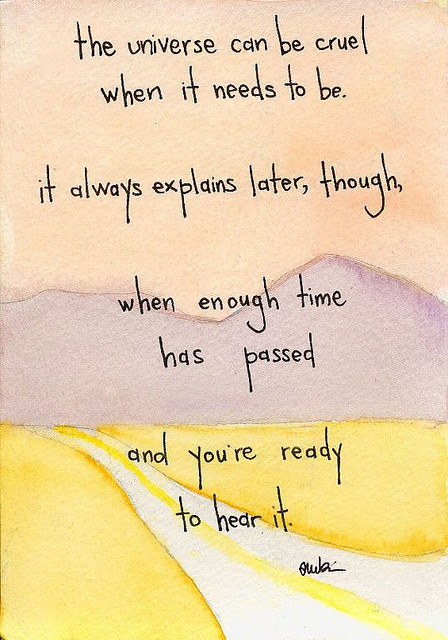 the universe can be cruel
when it needs to be.
it always explains later, though,
when enough time
has passed
and you're ready
to hear it.